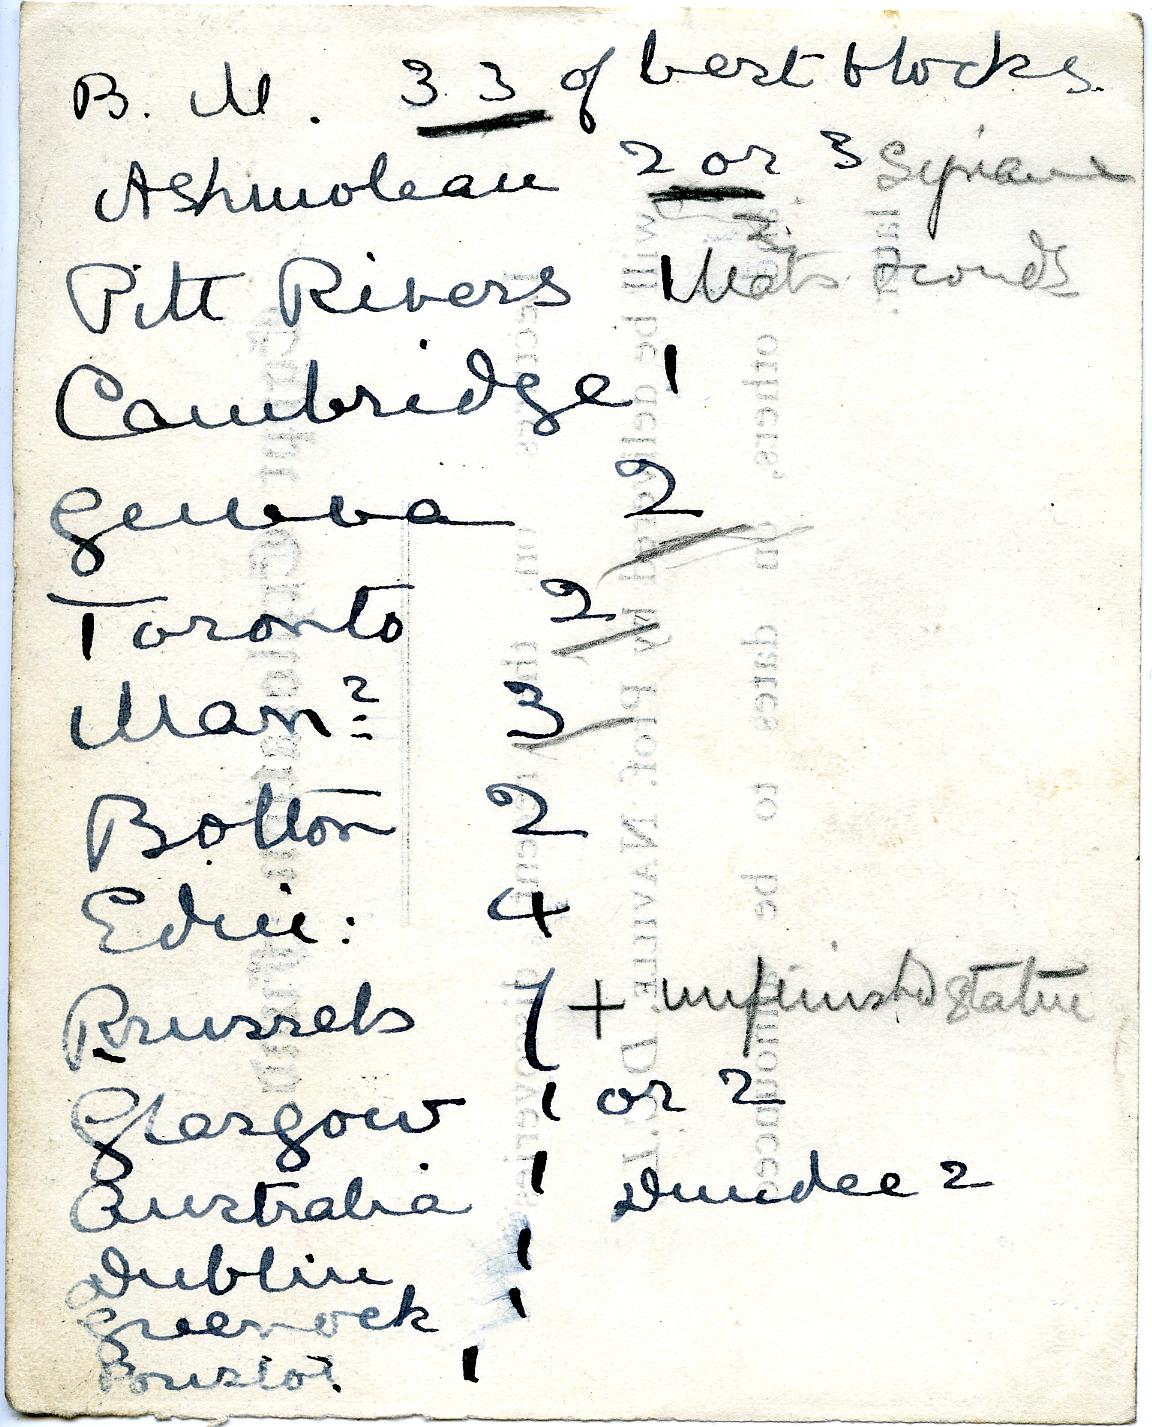 B. M. 33 of best blocks.
Ashmolean 2 or 3 Syrians
Pitt Rivers 1 Mats
Cambridge 1
Geneva 2
Toronto 2
Man? 3
Bolton 2
Edin: 4
Brussels 1 + unfinished statue
Glasgow 1 or 2
Australia 1 Dundee 2
Dublin 1
Greenock 1
Bristol. 1